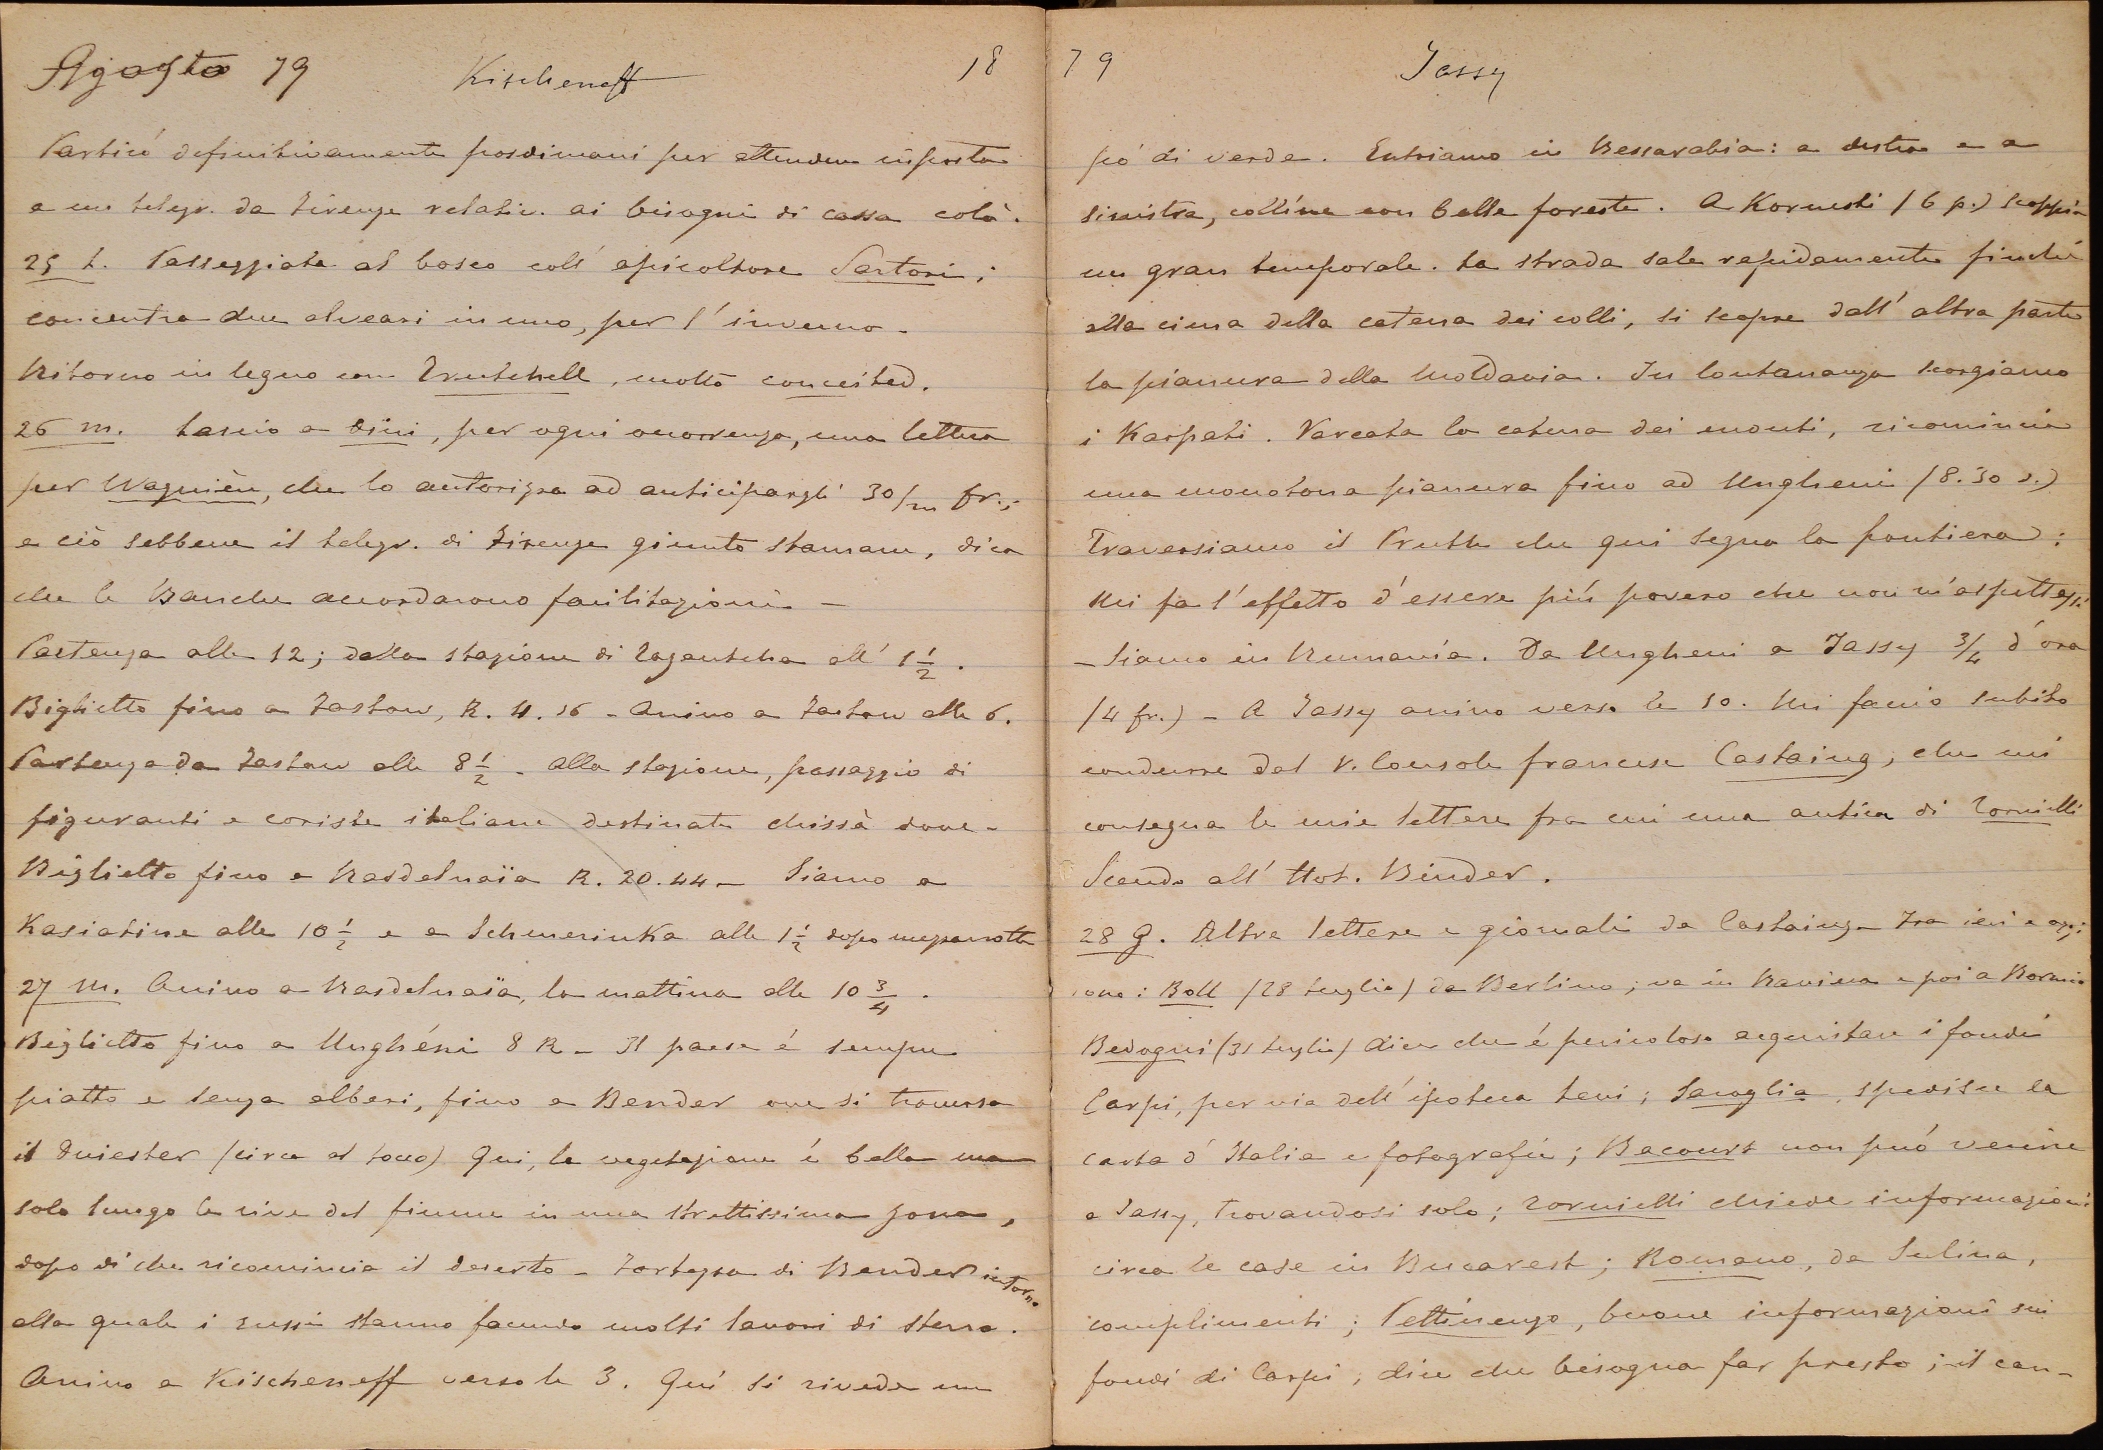 Agosto 79 Kischeneff 18
Partirò definitivamente posdimani per attendere risposta
a un telegr. da Firenze relativ. ai bisogni di cassa colà.
25 L. Passeggiata al bosco coll' apicoltore Sartori;
concentra due alveari in uno, per l'inverno -
Ritorno in legno con Trutschell, molto conceited.
26 M. Lascio a Dini, per ogni occorrenza, una lettera
per Wagnière, che lo autorizza ad anticipargli 30/m fr.;
e ciò sebbene il telegr. di Firenze giunto stamane, dica
che le Banche accordarono facilitazioni -
Partenza alle 12; dalla stazione di all' 1 1/2.
Biglietto fino a Fastow, R. 4.16 - Arrivo a Fastow alle 6.
Partenza da Fastow alle 8 1/2 - Alla stazione, passaggio di
figuranti e coriste italiane destinate chissà dove -
Biglietto fino a Rasdelnaïa R. 20.44 - Siamo a
Kasiatine alle 10 1/2 e a Schmerinka alle 1 1/2 dopo mezzanotte
27 M. Arrivo a Rasdelnaïa, la mattina alle 10 3/4.
Biglietto fino a Unghéni 8 R - Il paese é sempre
piatto e senza alberi, fino a Bender ove si traversa
il Dniester (circa al tocco) Qui, la vegetazione é bella ma
solo lungo le rive del fiume in una strettissima zona,
dopo di che ricomincia il deserto - Fortezza di Bender intorno
alla quale i russi stanno facendo molti lavori di sterro.
Arrivo a Kischeneff verso le 3. Qui si rivede un
79 Jassy
pó di verde. Entriamo in Bessarabia: a destra e a
sinistra, colline con belle foreste. A Kornesti (6 p.) scoppia
un gran temporale. La strada sale rapidamente finché
alla cima della catena dei colli, si scopre dall' altra parte
la pianura della Moldavia. In lontananza scorgiamo
i Karpati. Varcata la catena dei monti, ricomincia
una monotona pianura fino ad Ungheni (8.30 s.)
Traversiamo il Pruth che qui segna la frontiera:
Mi fa l'effetto d'essere più povero che non m'aspettassi
- Siamo in Rumania. Da Ungheni a Jassy 3/4 d'ora
(4 fr.) - A Jassy arrivo verso le 10. Mi faccio subito
condurre dal V. Console francese Castaing, che mi
consegna le mie lettere fra cui una antica di Tornielli
Scendo all' Hot. Binder.
28 G. Altre lettere e giornali da Castaing - Fra ieri e oggi
sono: Boll (28 luglio) da Berlino; va in Baviera e poi a Bormio
Bedogni (31 luglio) dice che é pericoloso acquistare i fondi
Carpi, per via dell' ipoteca Levi; Saroglia, spedisce la
carta d'Italia e fotografie; Bacourt non può venire
a Jassy, trovandosi solo; Tornielli chiede informazioni
circa le case in Bucarest; Romano, da Sulina,
complimenti; Pettinengo, buone informazioni sui
fondi di Carpi; dice che bisogna far presto; il can-